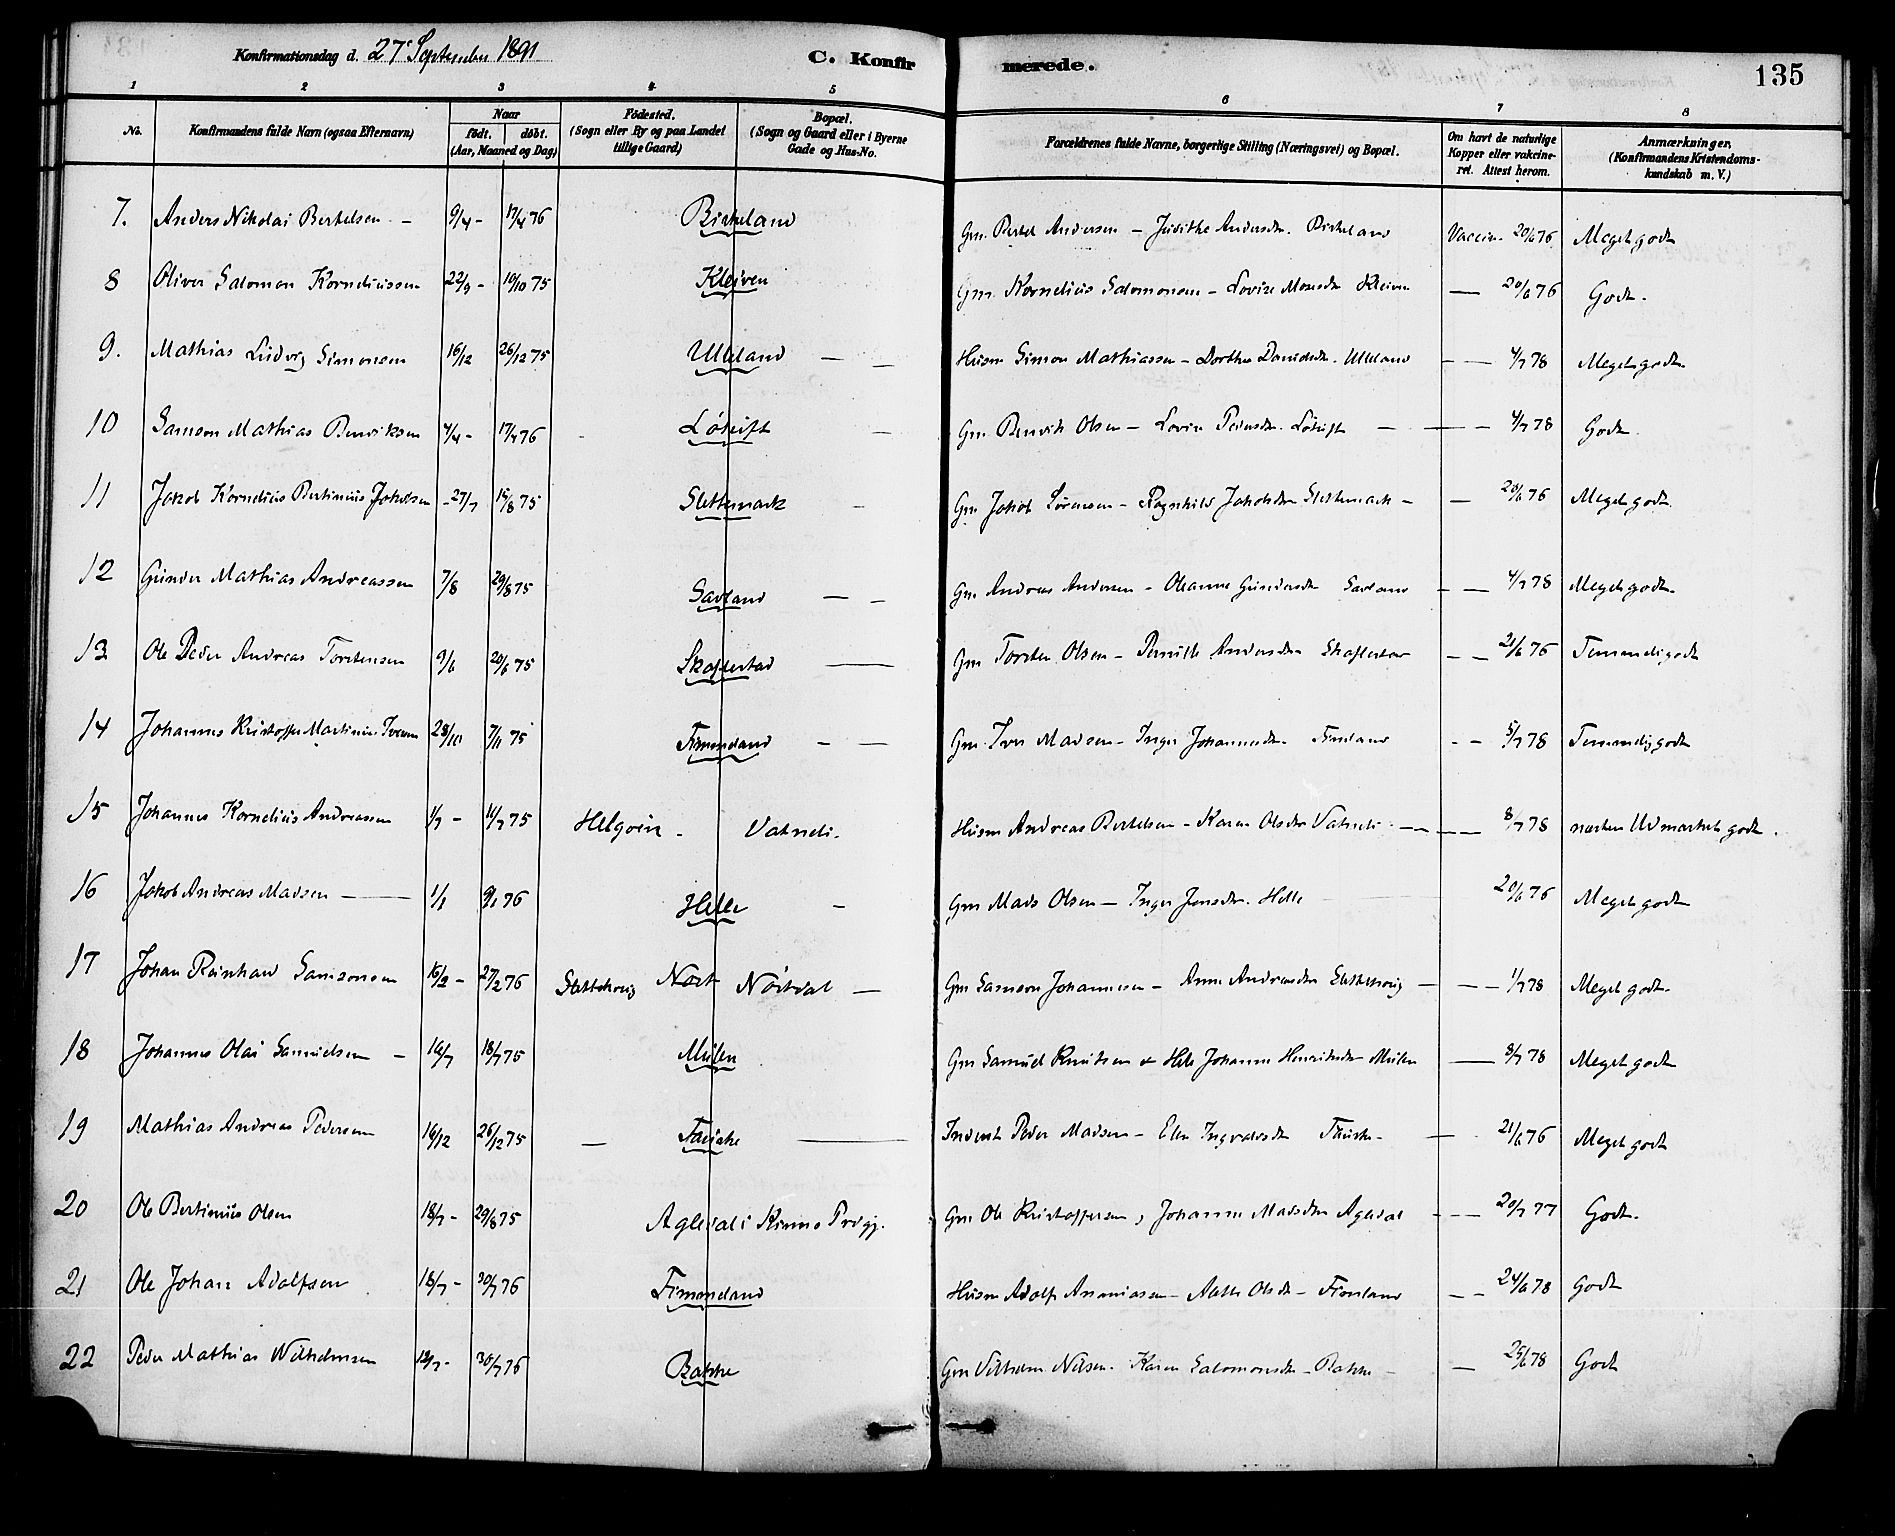 Konfirmationsdag d. 27 September 1891
C. Konfir merede.
135
1 2 3 4 5 6 7 8
No. Konfirmandens fulde Navn (ogsaa Efternavn) Naar født. døbt. (Aar, Maaned og Dag) Fødested. (Sogn eller By og paa Landet tillige Gaard) Bopæl. (Sogn og Gaard eller i Byerne Gade og Hus-No. Forældrenes fulde Navne, borgerlige Stilling (Næringsvei) og Bopæl. Om havt de naturlige Kopper eller vakcineret. Attest herom. Anmærkninger. (Konfirmandens Kristendomskundskab m. V.)
7. Anders Nikolai Bertelsen - 9/4 - 17/4 76 Birkeland Gm. Bertel Andersen - Judithe Andersdtr. Birkeland Vaccin. 20/6 76 Meget godt
8 Oliver Salomon Korneliussen 22/9 - 10/10 75 Kleiven Gm. Kornelius Salomonsen - Lovise Monsdtr Kleiven - 20/6 76 Godt.
9. Mathias Ludvig Simonsen 16/12 26/12 75 Ulleland - - Husm Simon Mathiassen - Dorthea Danielsdtr. Ulleland - - 4/7 78 Meget godt.
10 Samson Mathias Bendiksen 4/4 - 17/4 76 - Gm Bendik Olsen - Lovise Pedersdtr. - - - 4/7 78 Godt.
11 Jakob Kornelius Bertinius Jakobsen - 27/7 15/8 75 Slettemark - Gm Jakob Sørensen - Ragnhild Jakobsdtr Slettemark - - 20/6 76 Meget godt.
12 Gunder Mathias Andreassen 7/8 29/8 75 Savland - - Gm Andreas Andersen - Oleanne Gundersdtr Savland - - 4/7 78 Meget godt.
13 Ole Peder Andreas Torstensen 9/6 20/6 75 Skaftestad - Gm Torsten Olsen - Pernille Andersdtr Skaftestad - - 21/6 76 Temmelig godt
14 Johannes Kristoffer Martinius Iversen 28/10 7/11 75 Fimmeland - - Gm. Iver Madsen - Inger Johannesdtr. Fimland - - 5/7 78 Temmelig godt
15 Johannes Kornelius Andreassen 1/7 - 11/7 75 Helgøen - Vatneli. Husm Andreas Bertelsen - Karen Olsdtr Vatneli - - - 8/7 78 næsten Udmærket godt.
16 Jakob Andreas Madsen - 1/1 9/1 76 Helle - Gm Mads Olsen - Inger Jonsdtr. Helle 20/6 76 Meget godt
17 Johan Reinhard Samsonsen 16/2 - 27/2 76 Slettehoug Nørdal - Gm Samson Johannesen - Anne Andreasdtr Slettehoug - - - 1/7 78 Meget godt.
18 Johannes Olai Samuelsen - 18/7 75 Mulen Gm Samuel Knutsen & Hele Johanne Henriksdtr Mulen - 8/7 78 Meget godt
19 Mathias Andreas Pedersen 16/12 26/12 75 - Fauske - Inderst Peder Madsen - Elen Ingvaldsdtr Fauske - - 21/6 76 Meget godt
20 Ole Bertinius Olsen 18/7 - 29/8 75 Agledal i Kinns Prgj. Gm Ole Kristoffersen, Johanne Madsdtr Agledal - - 20/7 77 Godt.
21 Ole Johan Adolfsen 18/7 - 30/7 76 Fimmeland Husm Adolf Ananiassen - Olsdtr - Fimland - - 24/6 78 Godt
22 Peder Mathias Wilhelmsen 30/7 76 Bakke Gm Vilhelm Nilsen. Karen Salomonsdtr - Bakke - - 25/6 78 Godt